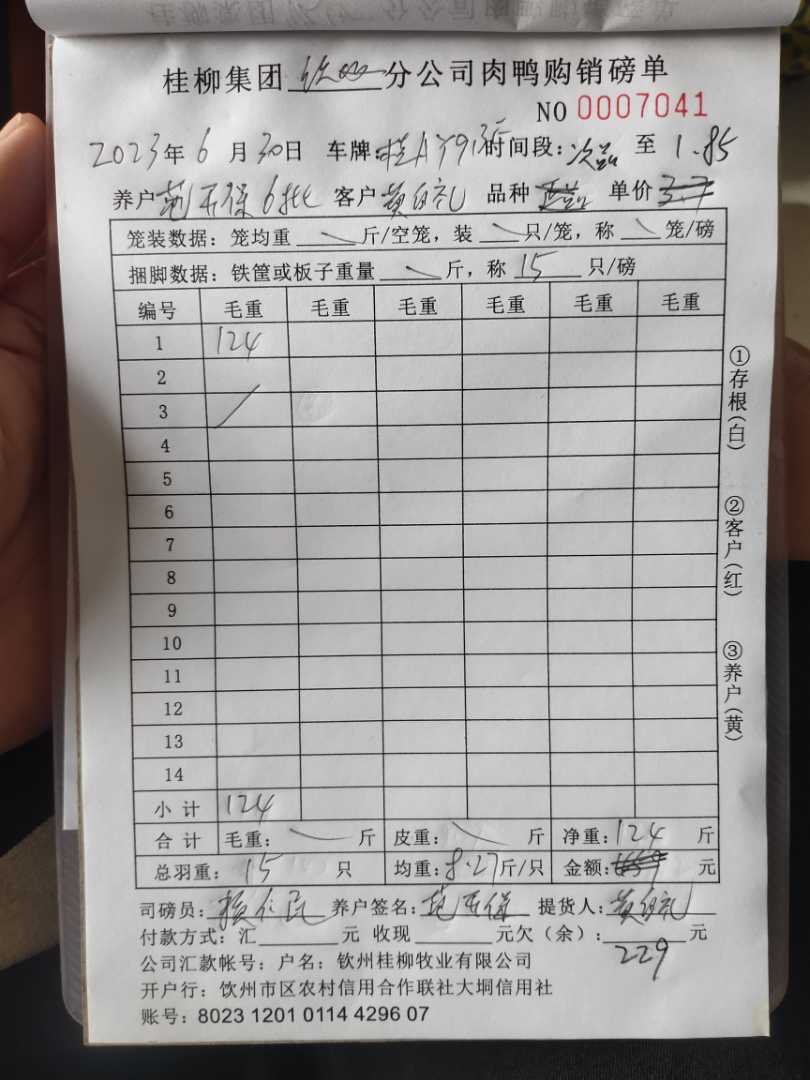 桂柳集团 钦州 分公司肉鸭购销磅单
NO 0007041
2023年 6 月 30日 车牌: 桂A 时间段: 次品 至 1.85
养户 保 6批 客户 黄 礼 品种 单价 3.7
笼装数据：笼均重 斤/空笼，装 只/笼，称 笼/磅
捆脚数据：铁筐或板子重量 斤，称 15 只/磅
编号 毛重 毛重 毛重 毛重 毛重 毛重
1 124
2
3
4
5
6
7
8
9
10
11
12
13
14
小 计 124
合 计 毛重： 斤 皮重： 斤 净重：124 斤
总羽重： 15 只 均重：8.27斤/只 金额： 元
司磅员： 养户签名： 保 提货人：黄 礼
付款方式：汇 元 收现 元欠（余）： 元
229
公司汇款帐号：户名：钦州桂柳牧业有限公司
开户行：饮州市区农村信用合作联社大垌信用社
账号：8023 1201 0114 4296 07
①存根(白)
②客户(红)
③养户(黄)